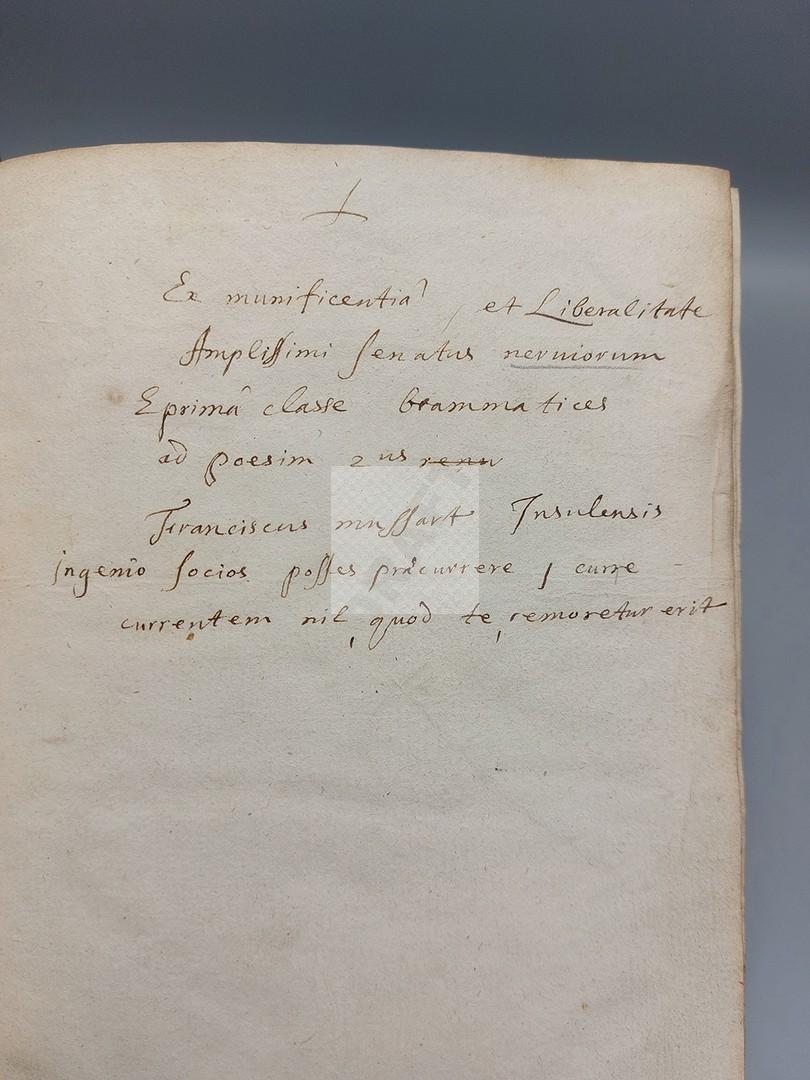 Ex munificentiâ, et Liberalitate
Amplissimi senatus nerviorum
E primâ classe Grammatices
ad poesim 2us renu
Franciscus mussart Insulensis
ingenio socios posses præcurrere, curre
currentem nil, quod te, remoretur erit